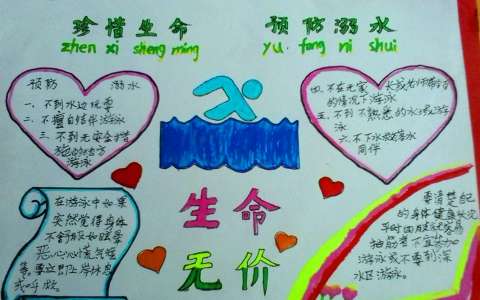 珍惜生命
zhen xi sheng ming
预防溺水
yu fang ni shui
预防 溺水
一、不到水边玩耍
二、不擅自结伴游泳
三、不到无安全措
施的地方
游泳
四、不在无家长或老师带领
的情况下游泳
五、不到不熟悉的水域游
泳
六、不下水救溺水
同伴
生命
无价
在游泳中如果
突然觉得身体
不舒服如眩晕
恶心心慌气短
等要立即上岸休息
或呼救
要清楚自己
的身体健康状况
平时四肢就容易
抽筋者不宜参加
游泳或不要到深
水区游泳。